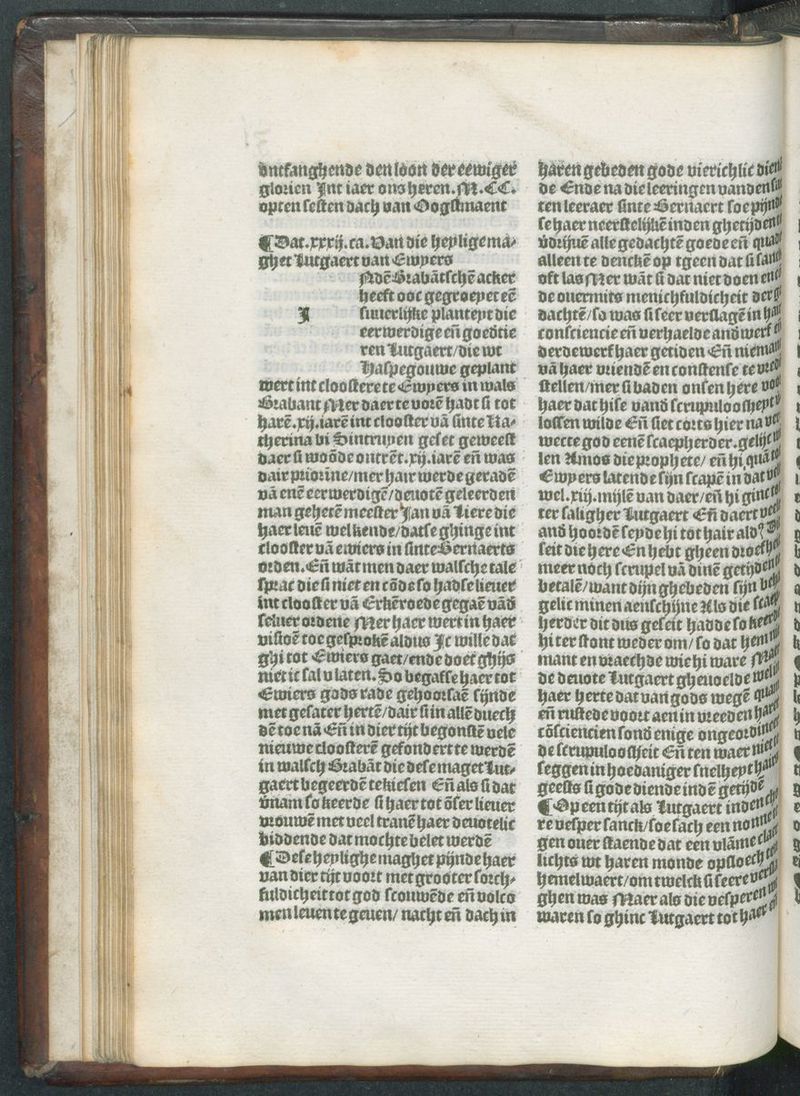 ontfanghende den loon der eewiger
glorien Int iaer ons heren .M.CC.
opten sesten dach van Oogstmaent
¶ Dat .xxxij. ca. Van die heylige ma-
ghet Lutgaert van Ewyers
I Ndē Brabātschē acker
heeft ooc gegroeyet eē
suuerlijke planteyt die
eerwerdige eñ goedtie
ren Lutgaert/die wt
Haspegouwe geplant
wert int clooster te Ewyers in wals
Brabant Mer daer te vorē hadt si tot
harē .xij. iarē int clooster vā sinte Ka-
therina bi Sintruyen geset geweest
daer si woōde ontrēt .xij. iarē eñ was
dair priorīne/mer hair werde geradē
vā enē eerwerdigē/deuotē geleerden
man gehetē meester Jan vā Liere die
haer leuē wel kende/datse ghinge int
clooster vā ewiers in sinte Bernaerts
orden. Eñ wāt men daer walsche tale
sprac die si niet en cōde so hadse lieuer
int clooster vā Erkēroede gegaē vād
seluer ordene Mer haer wert in haer
visioē toe gesprokē aldus Ic wille dat
ghi tot Ewiers gaet/ende doet ghijs
niet ic sal v laten. So begafse haer tot
Ewiers gods rade gehoorsaē sijnde
met gesater hertē/dair si in allē duech
dē toe nā Eñ in dier tijt begonstē vele
nieuwe cloosterē gefondert te werdē
in walsch Brabāt die dese maget Lut-
gaert begeerdē te kiesen Eñ als si dat
v̄nam so keerde si haer tot ōser lieuer
vrouwē met veel tranē haer deuotelic
biddende dat mochte belet werdē
¶ Dese heylighe maghet pijnde haer
van dier tijt voort met grooter sorch-
fuldicheit tot god scouwēde eñ volco
men leuen te geuen/ nacht eñ dach in
haren gebeden gode vierichlic
de Ende na die leeringen vanden
ten leeraer sinte Bernaert soe pijnde
se haer neerstelijkē inden ghetijden
v̄drijuē alle gedachtē goede eñ quade
alleen te denckē op tgeen dat si sanck
oft las Mer wāt si dat niet doen en
de ouermits menichfuldicheit der
dachtē/so was si seer verslagē in
consciencie eñ verhaelde andwerf
derdewerf haer getiden Eñ niemant
vā haer vriendē en constense te
stellen/mer si baden onsen here
haer dat hise vand scrupuloosheyt
lossen wilde Eñ siet corts hier na
wecte god eenē scaepherder. gelijc
len Amos die prophete/ eñ hi
Ewyers latende sijn scapē in dat
wel .xiij. mijlē van daer/eñ hi ginc
ter saligher Lutgaert Eñ daert
and hoordē seyde hi tot hair ald?
seit die here En hebt gheen
meer noch scrupel vā dinē getijden
betalē/want dijn ghebeden sijn
gelic minen aenschijne Als die
herder dit dus geseit hadde so keerde
hi ter stont weder om/ so dat hem
mant en vraechde wie hi ware
de deuote Lutgaert gheuoelde wel
haer herte dat van gods wegē quam
eñ rustede voort aen in vreeden
cōsciencien sond enige
de scrupuloosheit Eñ ten waer niet
seggen in hoedaniger snelheyt
geests si gode diende indē getijdē
¶ Op een tijt als Lutgaert inden
re vesper sanck/soe sach een nonne
gen ouer staende dat een vlāme
lichts wt haren monde opsloech
hemelwaert/om twelck si seere
ghen was Maer als die vesperen
waren so ghinc Lutgaert tot haer